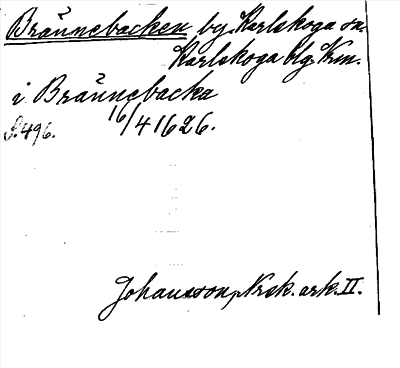 Brännebacken by Karlskoga sn.
Karlskoga blg. Krm.
i Brännebacka
S. 496. 16/4 1626.
Johansson, Nrsk. ark. II.